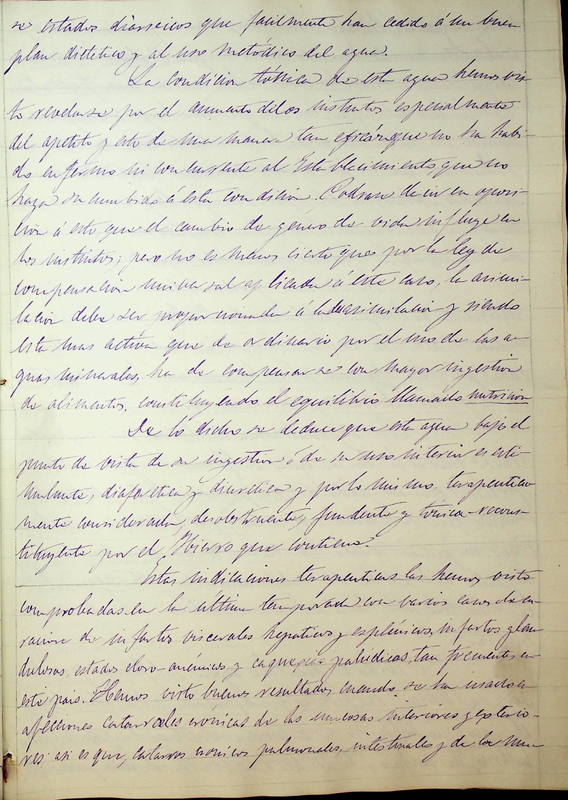 se estados diarreicos que facilmente han cedido á un buen
plan dietetico y al uso metódico del agua.
La condicion tónica de este agua hemos vis-
to revelarse por el aumento delos instintos especialmente
del apetito y esto de una manera tan eficáz que no ha habi-
do enfermo ni concurrente al Establecimiento que no
haya sucumbido á esta condicion. Podran decir en oposi-
cion á esto que el cambio de género de vida influye en
los instintos; pero no es menos cierto que por la ley de
compensacion universal aplicada á este caso, la asimi-
lacion debe ser proporcionada á la desasimilacion y siendo
esta mas activa que de ordinario por el uso de las a-
guas minerales, ha de compensarse con mayor ingestion
de alimentos, constituyendo el equilibrio llamado nutricion
De lo dicho se deduce que esta agua bajo el
punto de vista de su ingestion ó de su uso interior es esti-
mulante, diaforetica y diuretica y por lo mismo terapeutica-
mente considerada, desobstruente, fundente y tónica-recons-
tituyente por el Hierro que contiene.
Estas indicaciones terapeuticas las hemos visto
comprobadas en la última temporada con varios casos de cu-
racion de infartos viscerales hepaticos y esplénicos, infartos glan-
dulosos, estados cloro-anémicos y caquesias paludicas, tan frecuentes en
este pais. Hemos visto buenos resultados cuando se ha usado en
afecciones catarrales crónicas de las mucosas interiores y exterio-
res asi es que, catarros cronicos pulmonales, intestinales y de la mu-